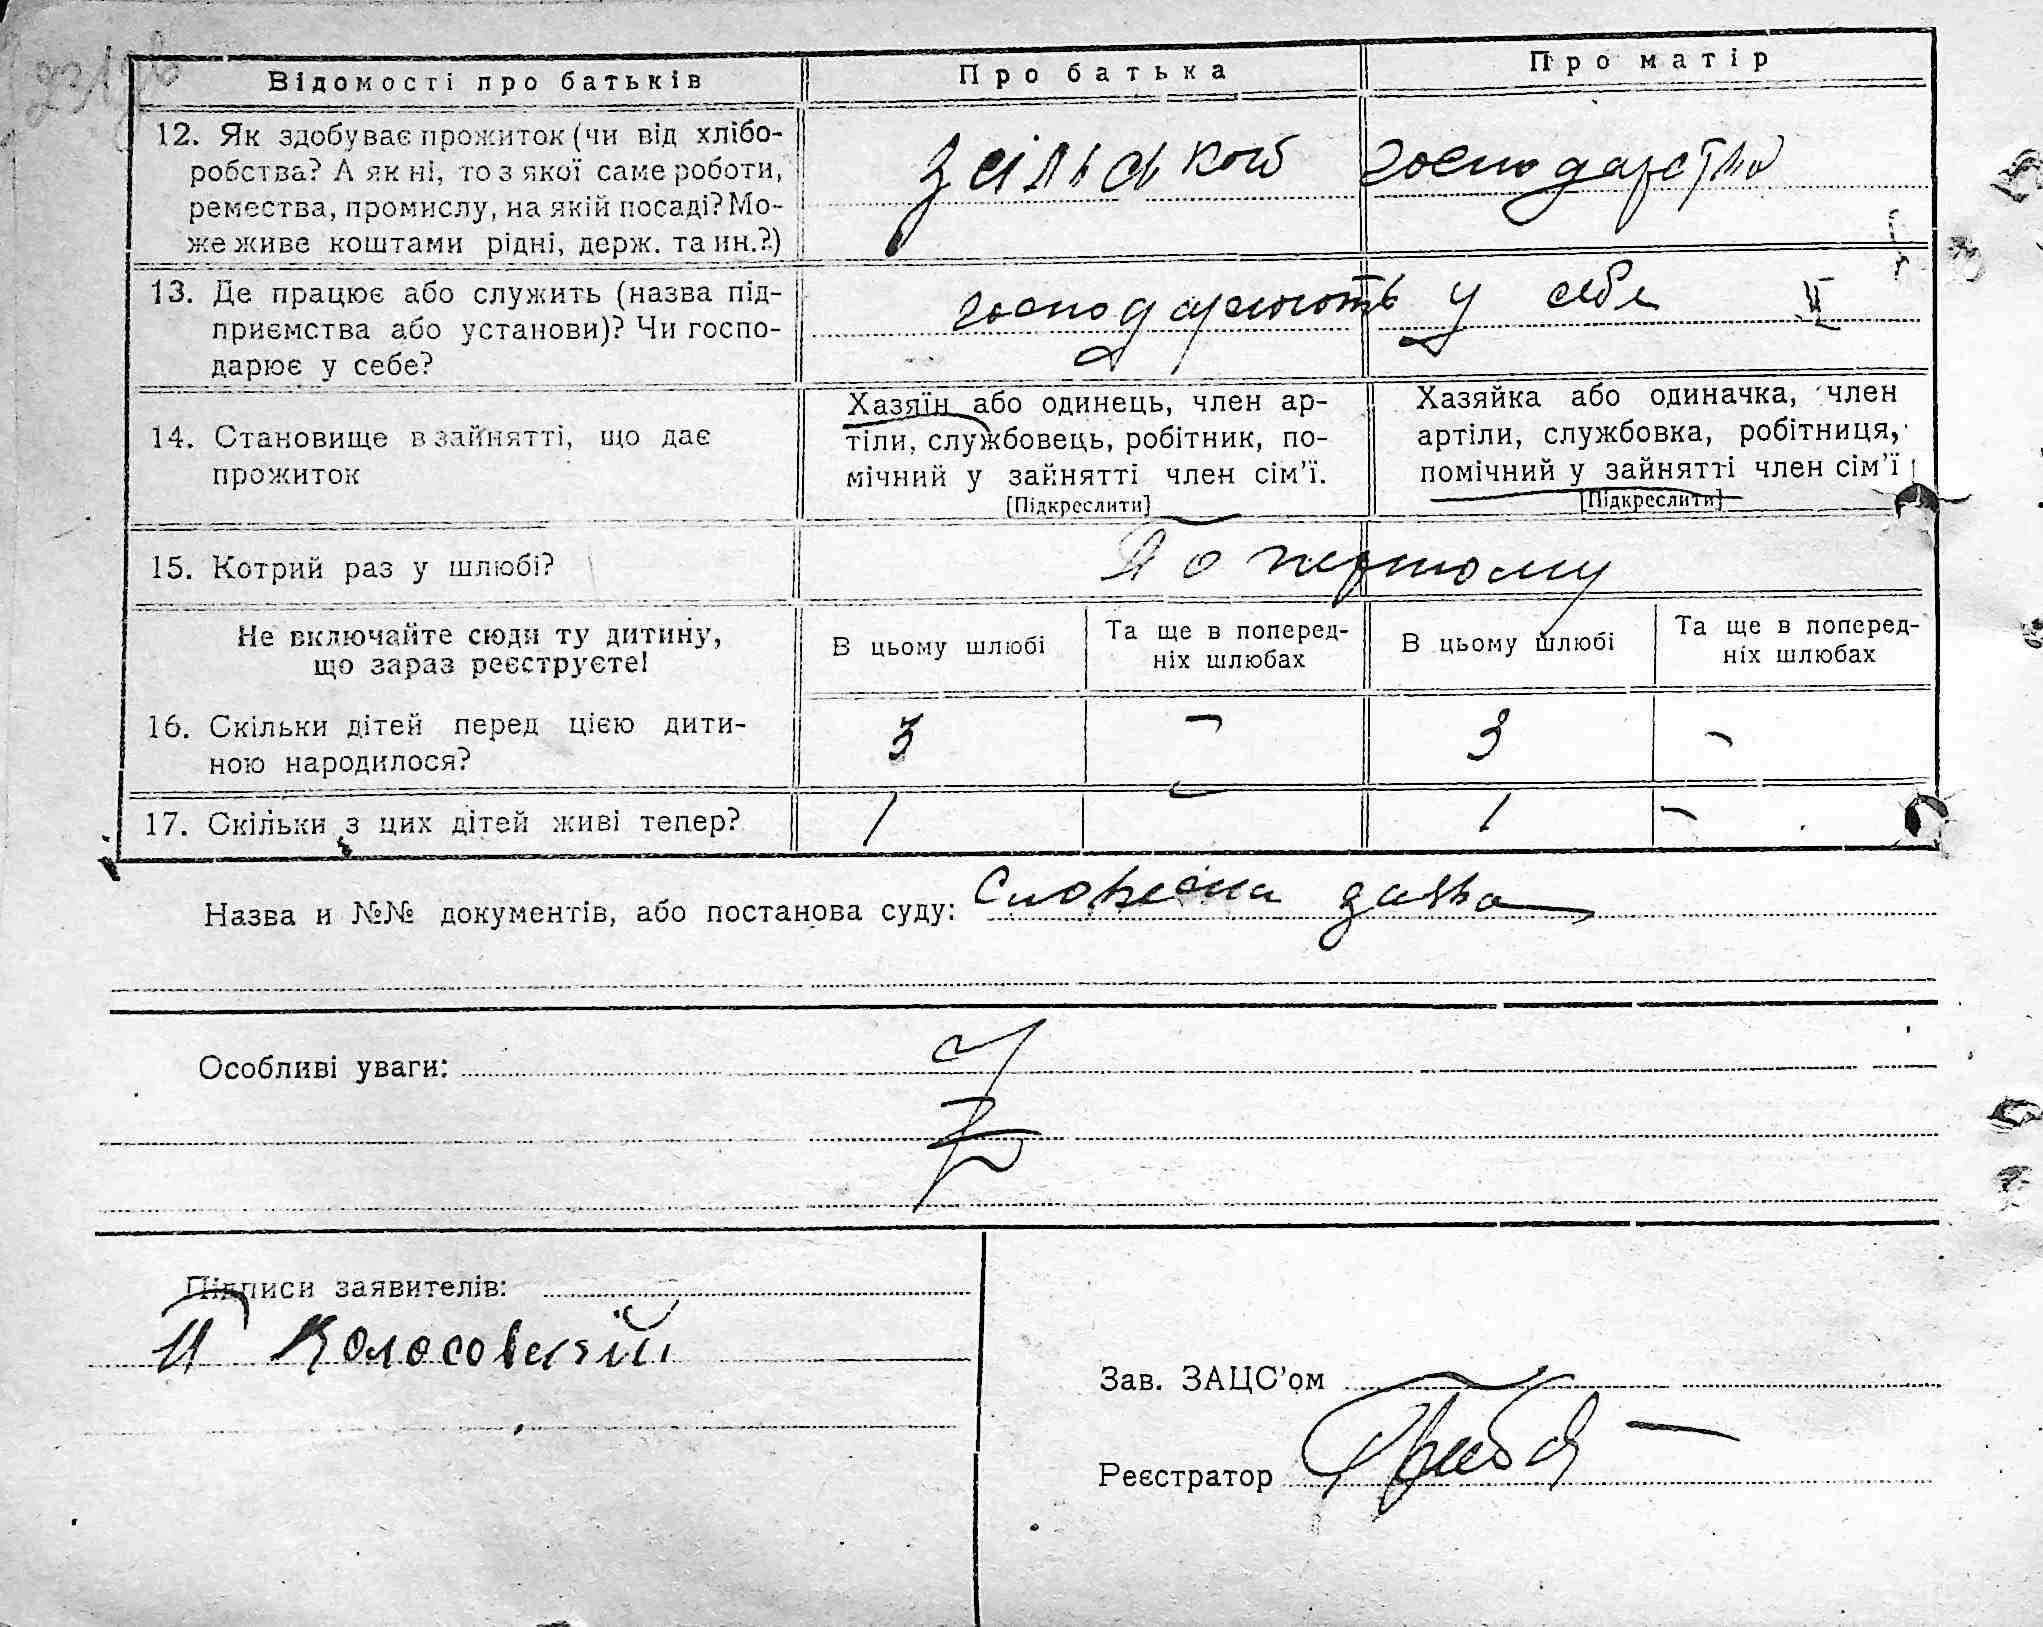 Відомості про батьків Про батька Про матір
12. Як здобуває прожиток (чи від хлібо-
робства? А як ні, то з якої саме роботи,
ремества, промислу, на якій посаді? Мо-
же живе коштами рідні, держ. та ин.?)
з сільського господарства
13. Де працює або служить (назва під-
приємства або установи)? Чи госпо-
дарює у себе?
господарюють у себе
14. Становище в зайнятті, що дає
прожиток
Хазяїн або одинець, член ар-
тіли, службовець, робітник, по-
мічний у зайнятті член сім’ї.
[Підкреслити]
Хазяйка або одиначка, член
артіли, службовка, робітниця,
помічний у зайнятті член сім’ї
[Підкреслити]
15. Котрий раз у шлюбі? По першому
Не включайте сюди ту дитину,
що зараз реєструєте!
В цьому шлюбі
Та ще в поперед-
ніх шлюбах
В цьому шлюбі
Та ще в поперед-
ніх шлюбах
16. Скільки дітей перед цією дити-
ною народилося?
3 - 3 -
17. Скільки з цих дітей живі тепер? 1 - 1 -
Назва и №№ документів, або постанова суду: Словесна заява
Особливі уваги:
Підписи заявителів:
П Колосовский
Зав. ЗАЦС’ом
Реєстратор